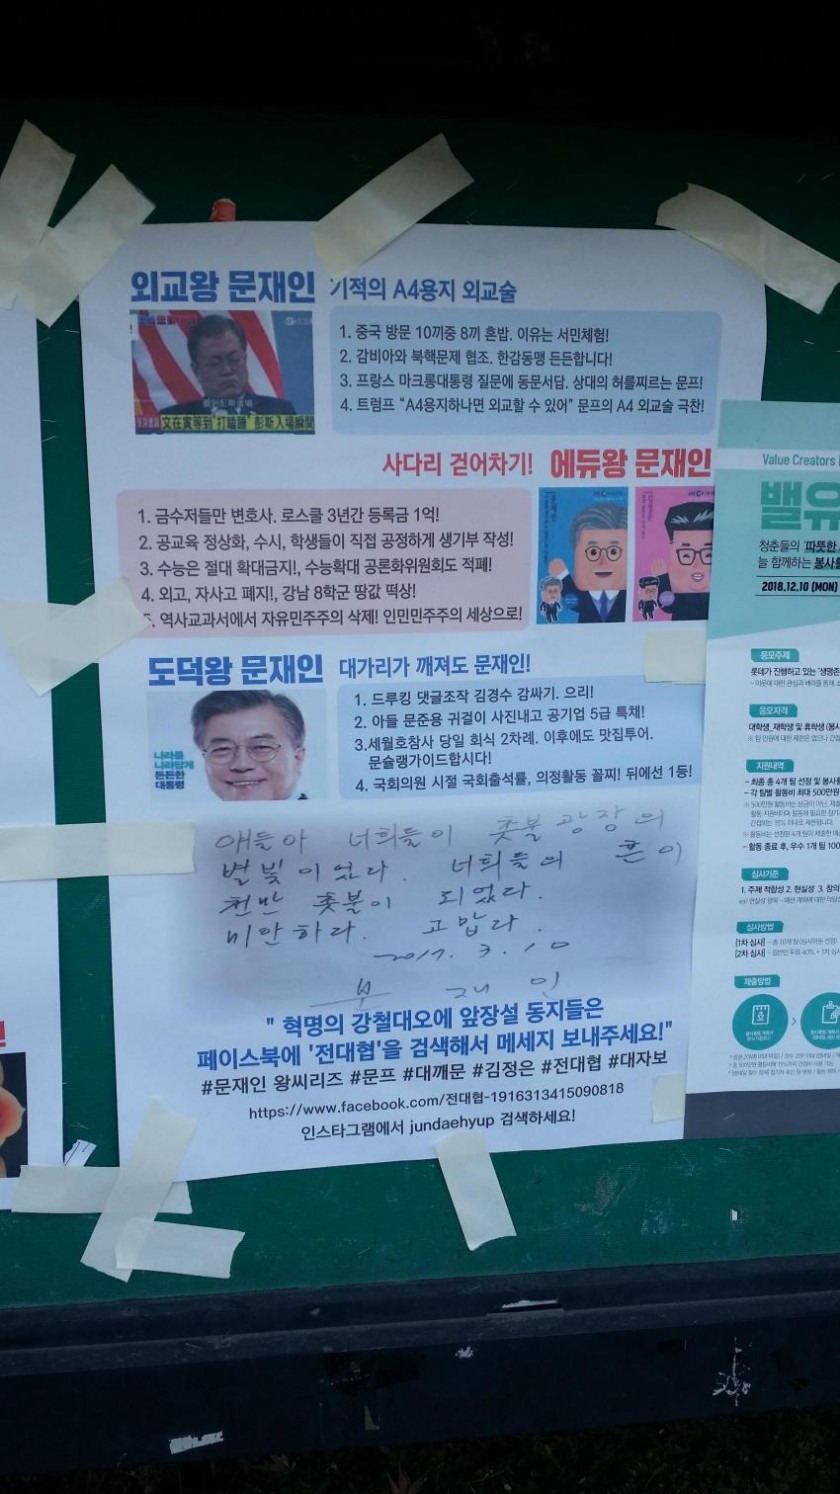 외교왕 문재인 기적의 A4용지 외교술
1. 중국 방문 10끼중 8끼 혼밥. 이유는 서민체험!
2. 감비아와 북핵문제 협조. 한감동맹 든든합니다!
3. 프랑스 마크롱대통령 질문에 동문서답. 상대의 허를찌르는 문프!
4. 트럼프 “A4용지하나면 외교할 수 있어” 문프의 A4 외교술 극찬!
文在寅等到"打瞌睡" 彭斯入場瞬間
사다리 걷어차기! 에듀왕 문재인
1. 금수저들만 변호사. 로스쿨 3년간 등록금 1억!
2. 공교육 정상화, 수시, 학생들이 직접 공정하게 생기부 작성!
3. 수능은 절대 확대금지!, 수능확대 공론화위원회도 적폐!
4. 외고, 자사고 폐지!, 강남 8학군 땅값 떡상!
5. 역사교과서에서 자유민주주의 삭제! 인민민주주의 세상으로!
도덕왕 문재인 대가리가 깨져도 문재인!
1. 드루킹 댓글조작 김경수 감싸기. 으리!
2. 아들 문준용 귀걸이 사진내고 공기업 5급 특채!
3.세월호참사 당일 회식 2차례. 이후에도 맛집투어.
문슐랭가이드합시다!
4. 국회의원 시절 국회출석률, 의정활동 꼴찌! 뒤에선 1등!
나라를
나라답게
든든한
대통령
얘들아 너희들이 촛불광장의
별빛이었다. 너희들의 혼이
천만 촛불이 되었다.
미안하다. 고맙다.
2017. 3. 10
문 재 인
" 혁명의 강철대오에 앞장설 동지들은
페이스북에 '전대협'을 검색해서 메세지 보내주세요!"
#문재인 왕씨리즈 #문프 #대깨문 #김정은 #전대협 #대자보
https://www.facebook.com/전대협-1916313415090818
인스타그램에서 jundaehyup 검색하세요!
Value Creators
밸유
청춘들의 '따뜻한
늘 함께하는 봉사
2018.12.10 [MON]
응모주제
롯데가 진행하고 있는 '생명존
응모자격
대학생_재학생 및 휴학생 (봉사
지원내역
- 최종 총 4개 팀 선정 및 봉사활
- 각 팀별 활동비 최대 500만원
- 활동 종료 후, 우수 1개 팀 100
심사기준
1. 주제 적합성 2. 현실성 3. 창의
심사방법
[1차 심사]
[2차 심사]
제출방법